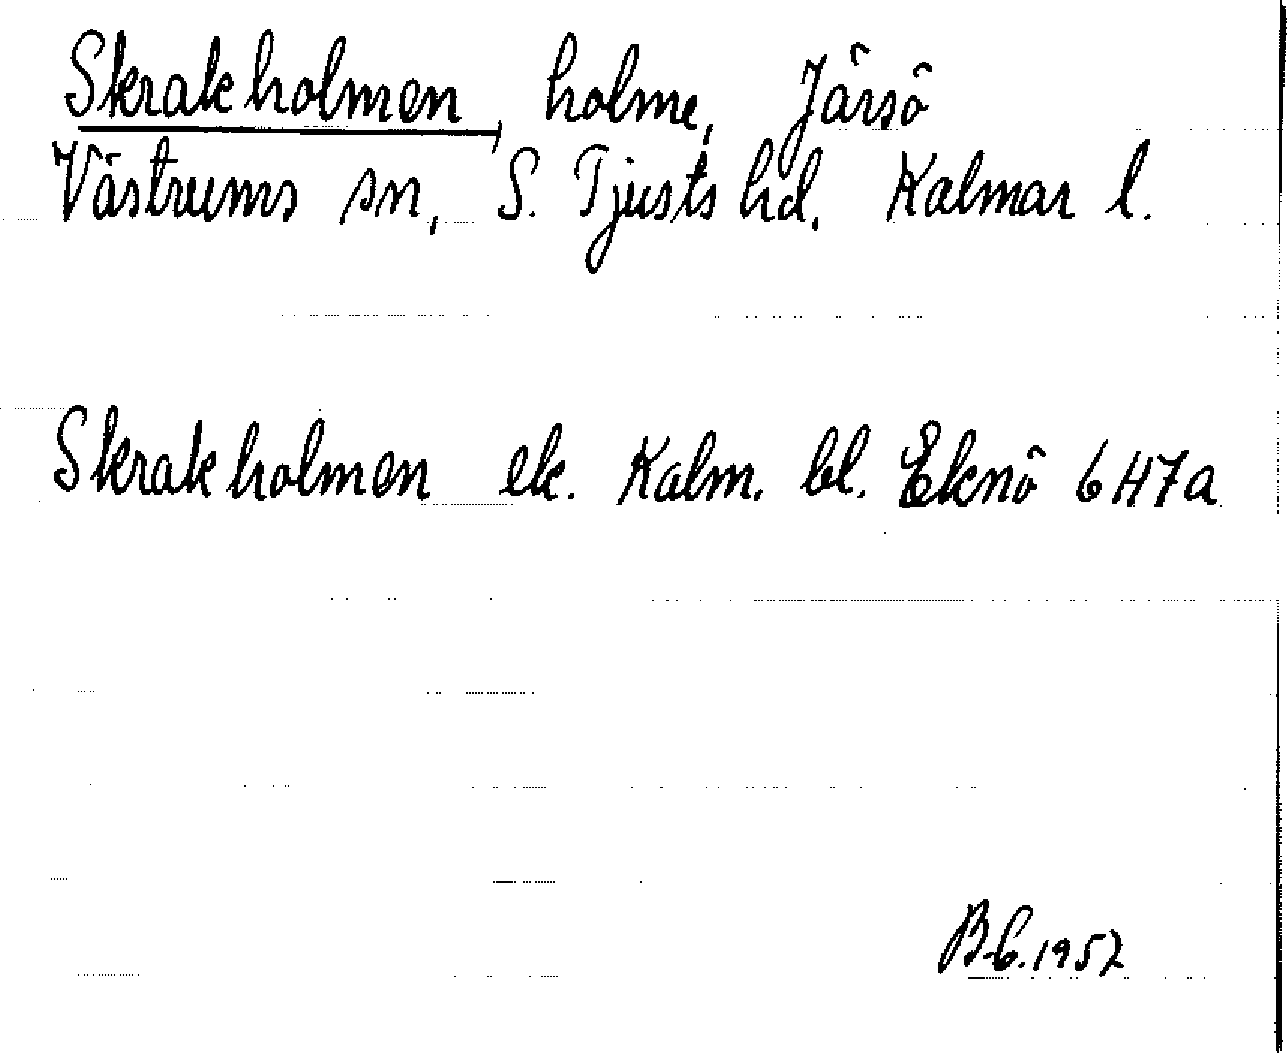 Skrakholmen, holme, Järsö
Västrums sn, S. Tjusts hd. Kalmar l.
Skrakholmen ek. Kalm. bl. Eknö 6H7a
B-b. 1952